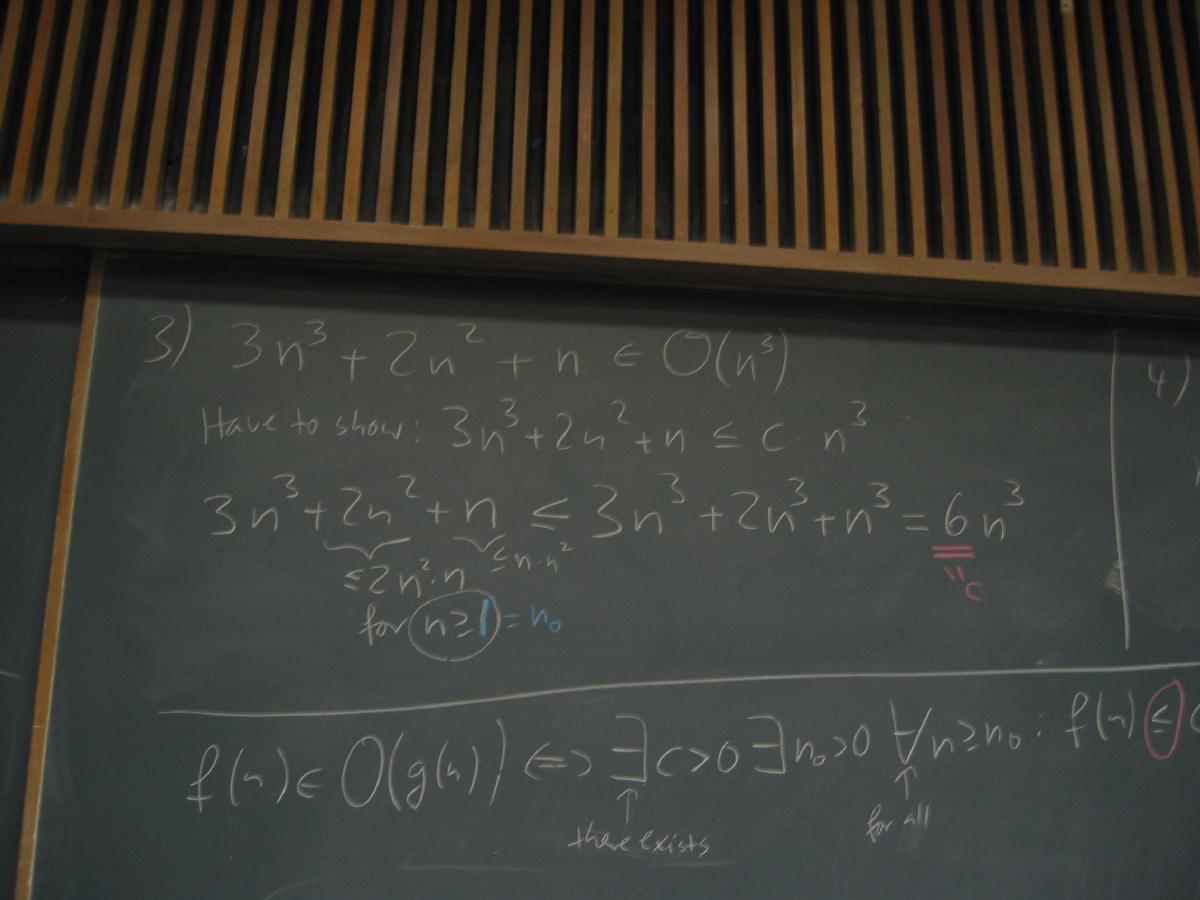 3) 3n³ + 2n² + n ∈ O(n³)
Have to show: 3n³ + 2n² + n ≤ c · n³
3n³ + 2n² + n ≤ 3n³ + 2n³ + n³ = 6n³
≤ 2n²·n ≤ n·n² "c
for n ≥ 1 = n₀
f(n) ∈ O(g(n)) <=> ∃c>0 ∃n₀>0 ∀n≥n₀: f(n) ≤ c
↑ ↑
there exists for all
4)